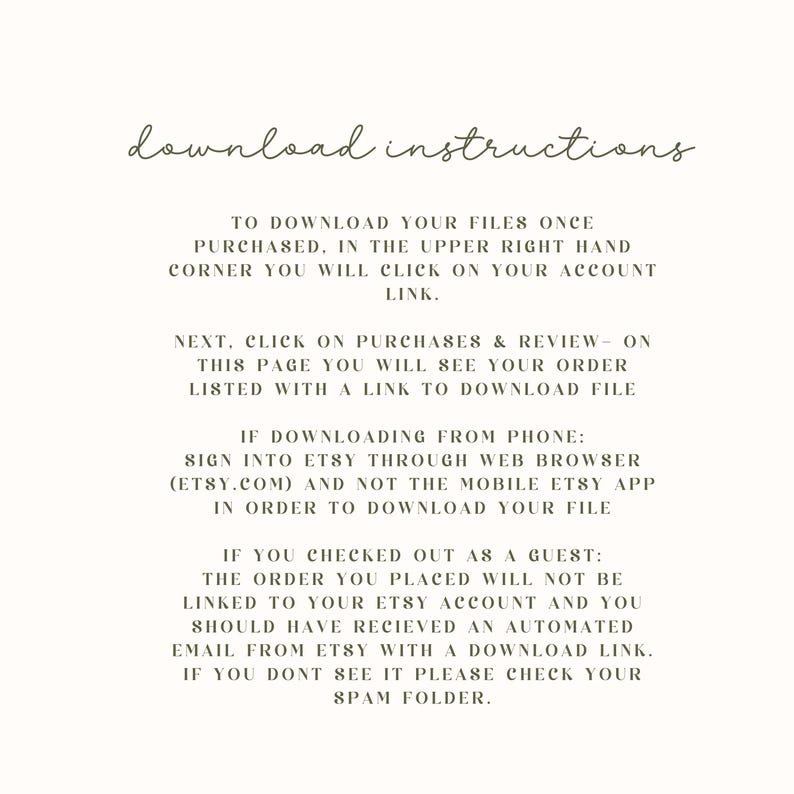 download instructions
TO DOWNLOAD YOUR FILES ONCE
PURCHASED, IN THE UPPER RIGHT HAND
CORNER YOU WILL CLICK ON YOUR ACCOUNT
LINK.
NEXT, CLICK ON PURCHASES & REVIEW– ON
THIS PAGE YOU WILL SEE YOUR ORDER
LISTED WITH A LINK TO DOWNLOAD FILE
IF DOWNLOADING FROM PHONE:
SIGN INTO ETSY THROUGH WEB BROWSER
(ETSY.COM) AND NOT THE MOBILE ETSY APP
IN ORDER TO DOWNLOAD YOUR FILE
IF YOU CHECKED OUT AS A GUEST:
THE ORDER YOU PLACED WILL NOT BE
LINKED TO YOUR ETSY ACCOUNT AND YOU
SHOULD HAVE RECIEVED AN AUTOMATED
EMAIL FROM ETSY WITH A DOWNLOAD LINK.
IF YOU DONT SEE IT PLEASE CHECK YOUR
SPAM FOLDER.